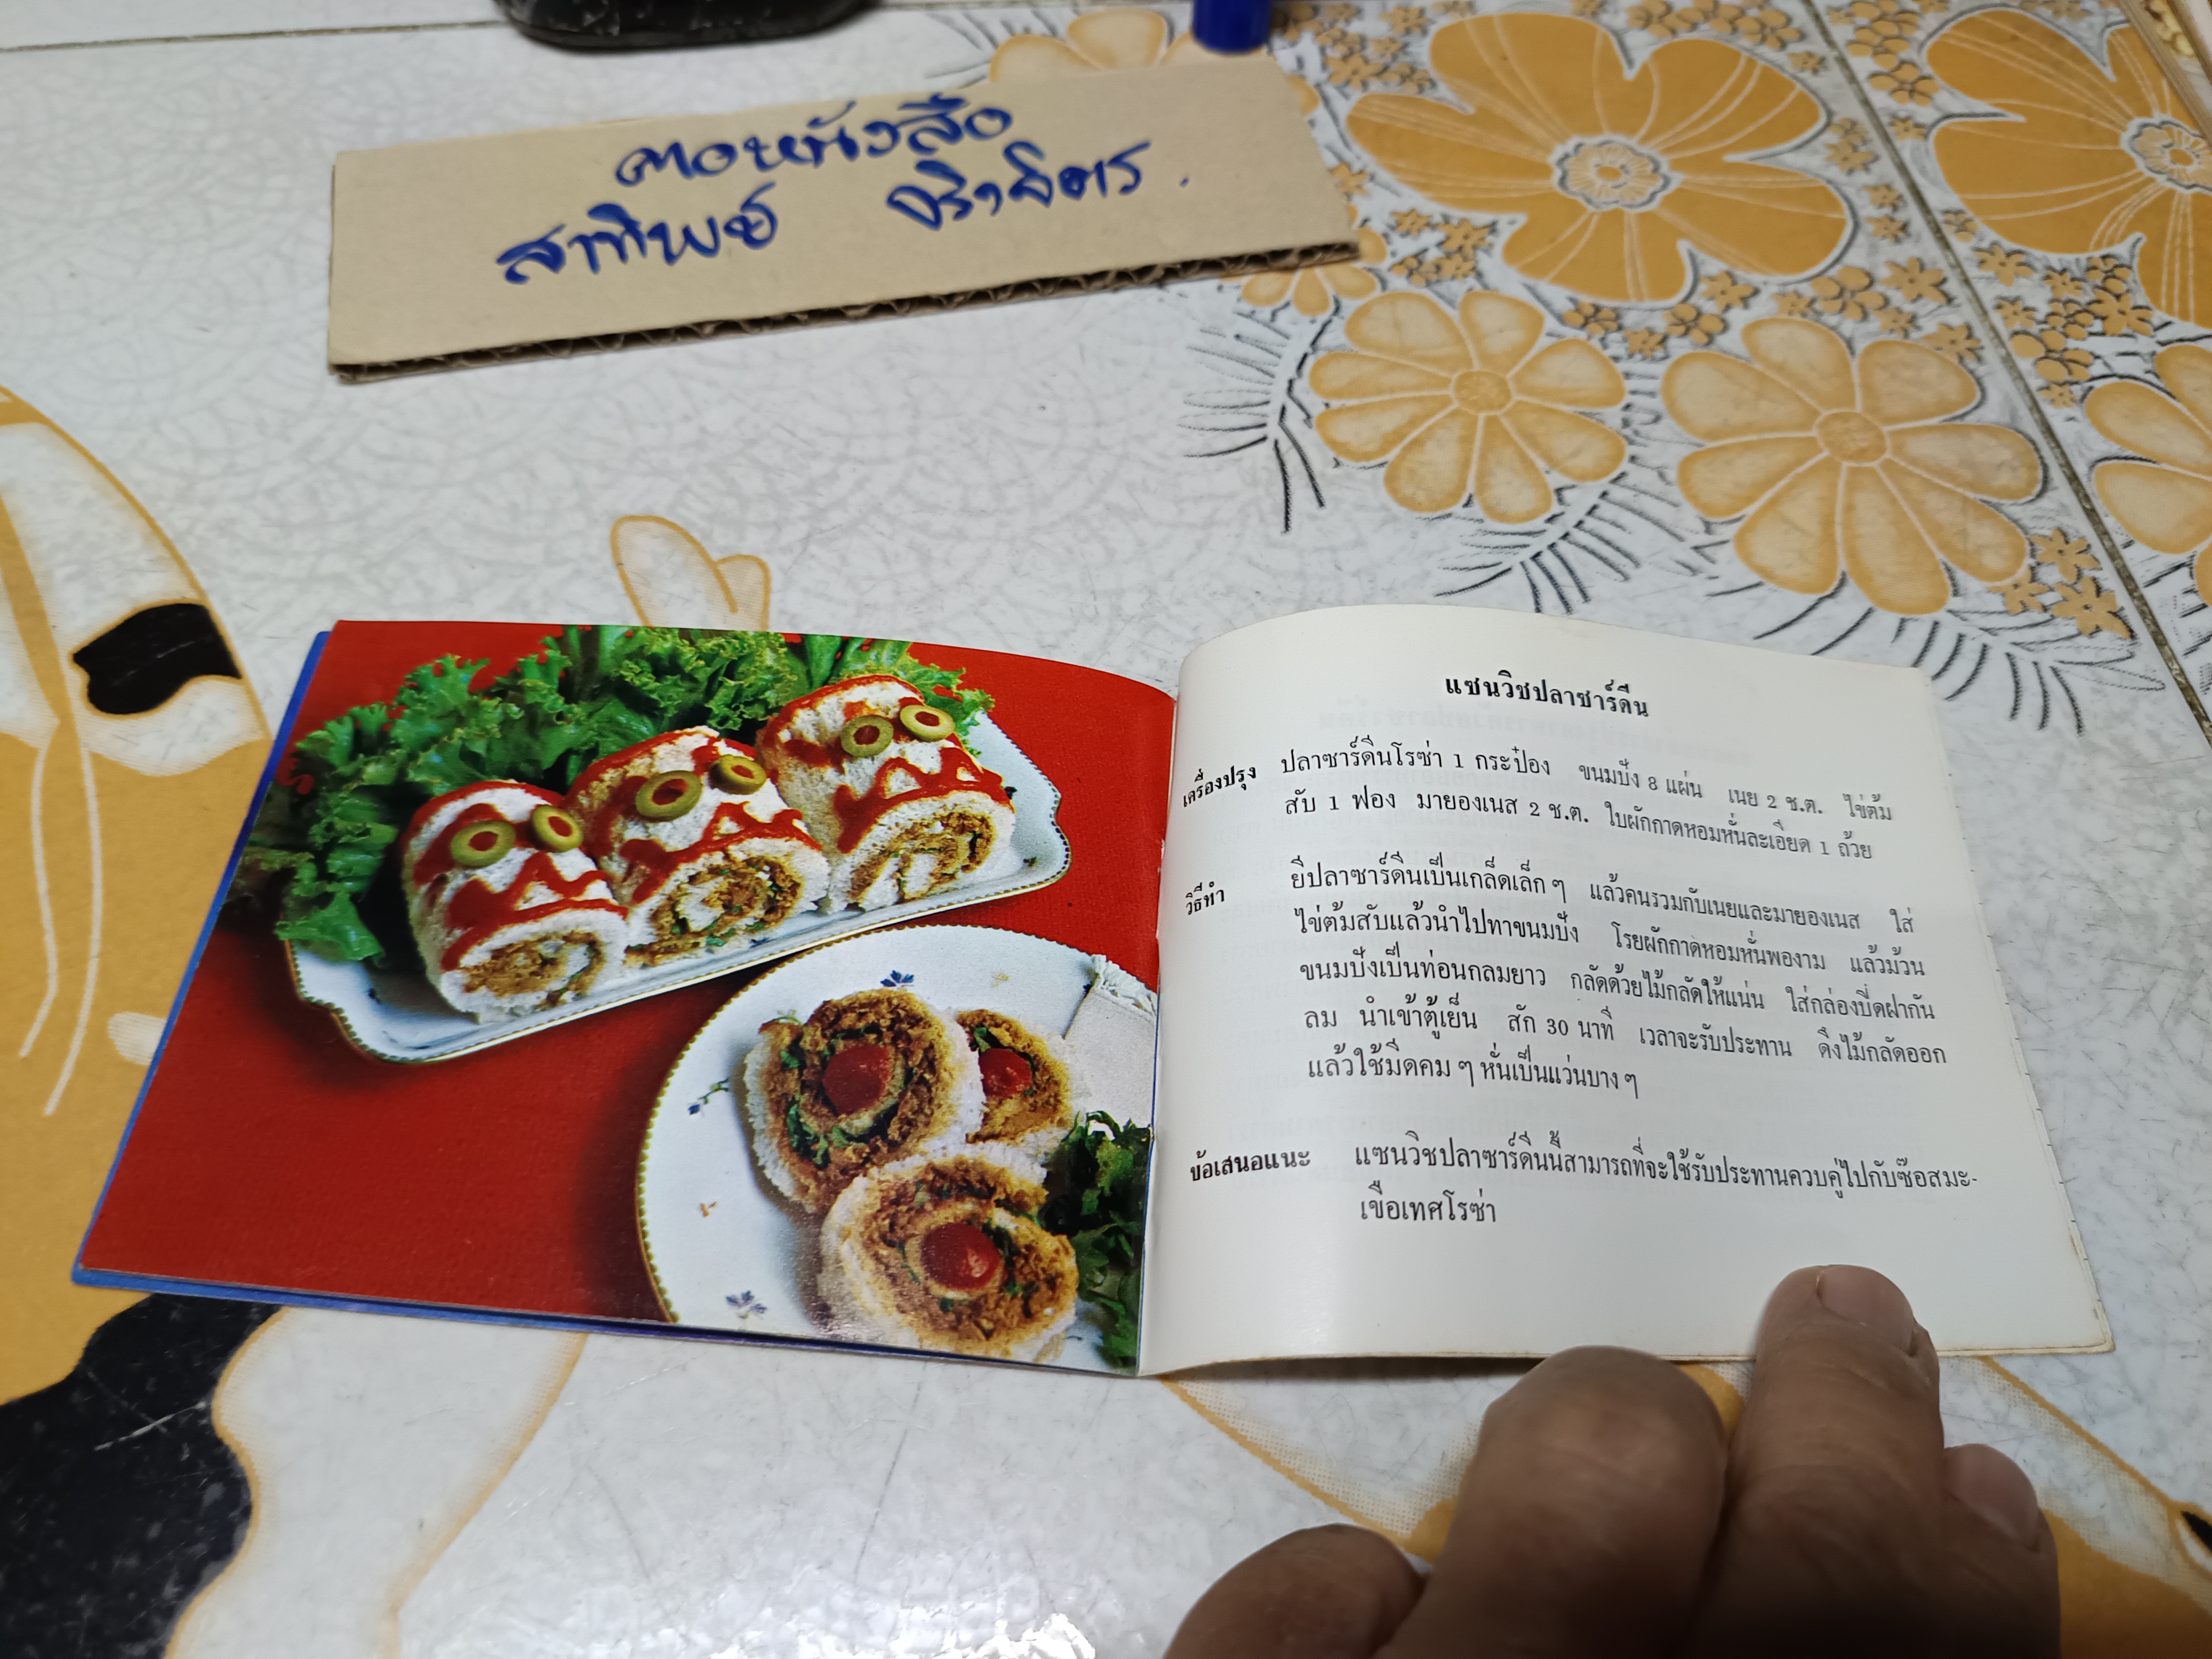 คอหนังสือ
สาทิพย์ จริาจิตร.
แซนวิชปลาซาร์ดีน
เครื่องปรุง ปลาซาร์ดีนโรซ่า 1 กระป๋อง ขนมปัง 8 แผ่น เนย 2 ช.ต. ไข่ต้ม
สับ 1 ฟอง มายองเนส 2 ช.ต. ใบผักกาดหอมหั่นละเอียด 1 ถ้วย
วิธีทำ ยีปลาซาร์ดีนเป็นเกล็ดเล็ก ๆ แล้วคนรวมกับเนยและมายองเนส ใส่
ไข่ต้มสับแล้วนำไปทาขนมปัง โรยผักกาดหอมหั่นพองาม แล้วม้วน
ขนมปังเป็นท่อนกลมยาว กลัดด้วยไม้กลัดให้แน่น ใส่กล่องปิดฝากัน
ลม นำเข้าตู้เย็น สัก 30 นาที เวลาจะรับประทาน ดึงไม้กลัดออก
แล้วใช้มีดคม ๆ หั่นเป็นแว่นบาง ๆ
ข้อเสนอแนะ แซนวิชปลาซาร์ดีนนี้สามารถที่จะใช้รับประทานควบคู่ไปกับซ๊อสมะ-
เขือเทศโรซ่า